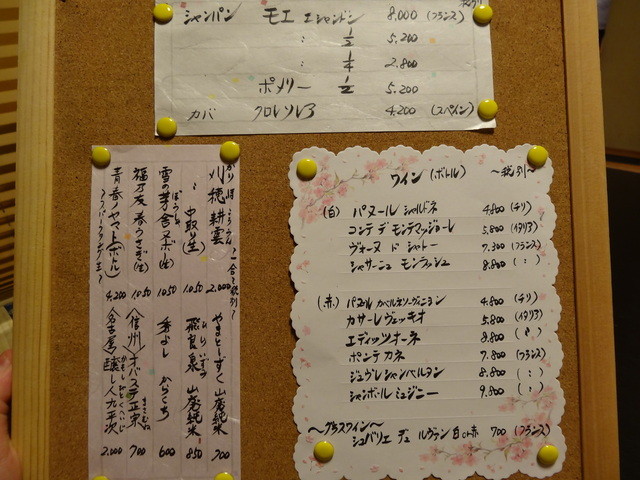 シャンパン モエ エシャンドン 8,000 (フランス)
〃 1/2 5,200
〃 1/4 2,800
ポメリー 1/2 5,200
カバ クロレソレ3 4,200 (スペイン)
ワイン (ボトル) ～税別～
(白) パヌール シャルドネ 4,800 (チリ)
コンテ デ モンテマッジョーレ 5,800 (イタリア)
ヴォーヌ ド シャトー 7,300 (フランス)
シャサーニュ モンラッシュ 8,800 (〃)
(赤) パヌル カベルネソーヴィニヨン 4,800 (チリ)
カサーレヴェッキオ 5,800 (イタリア)
エディッツオーネ 8,800 (〃)
ポンテカネ 7,800 (フランス)
ジュヴレシャンベルタン 8,800 (〃)
シャンボールミュジニー 9,800 (〃)
～グラスワイン～
シュバリエ デュ ルヴァン 白or赤 700 (フランス)
～一合～税別～
刈穂 耕雲 2,000
〃 中取り(生) 1050
雪の芽舎ヌボー(生) 1050
福乃友 春うさぎ(生) 1050
青春のヤマト(ボトル) 4,200
やまとしずく 山廃純米 700
飛良泉 山廃純米 850
秀よし からくち 600
(信州) オバステ正宗 700
(名古屋) 醸し人九平次 2,000